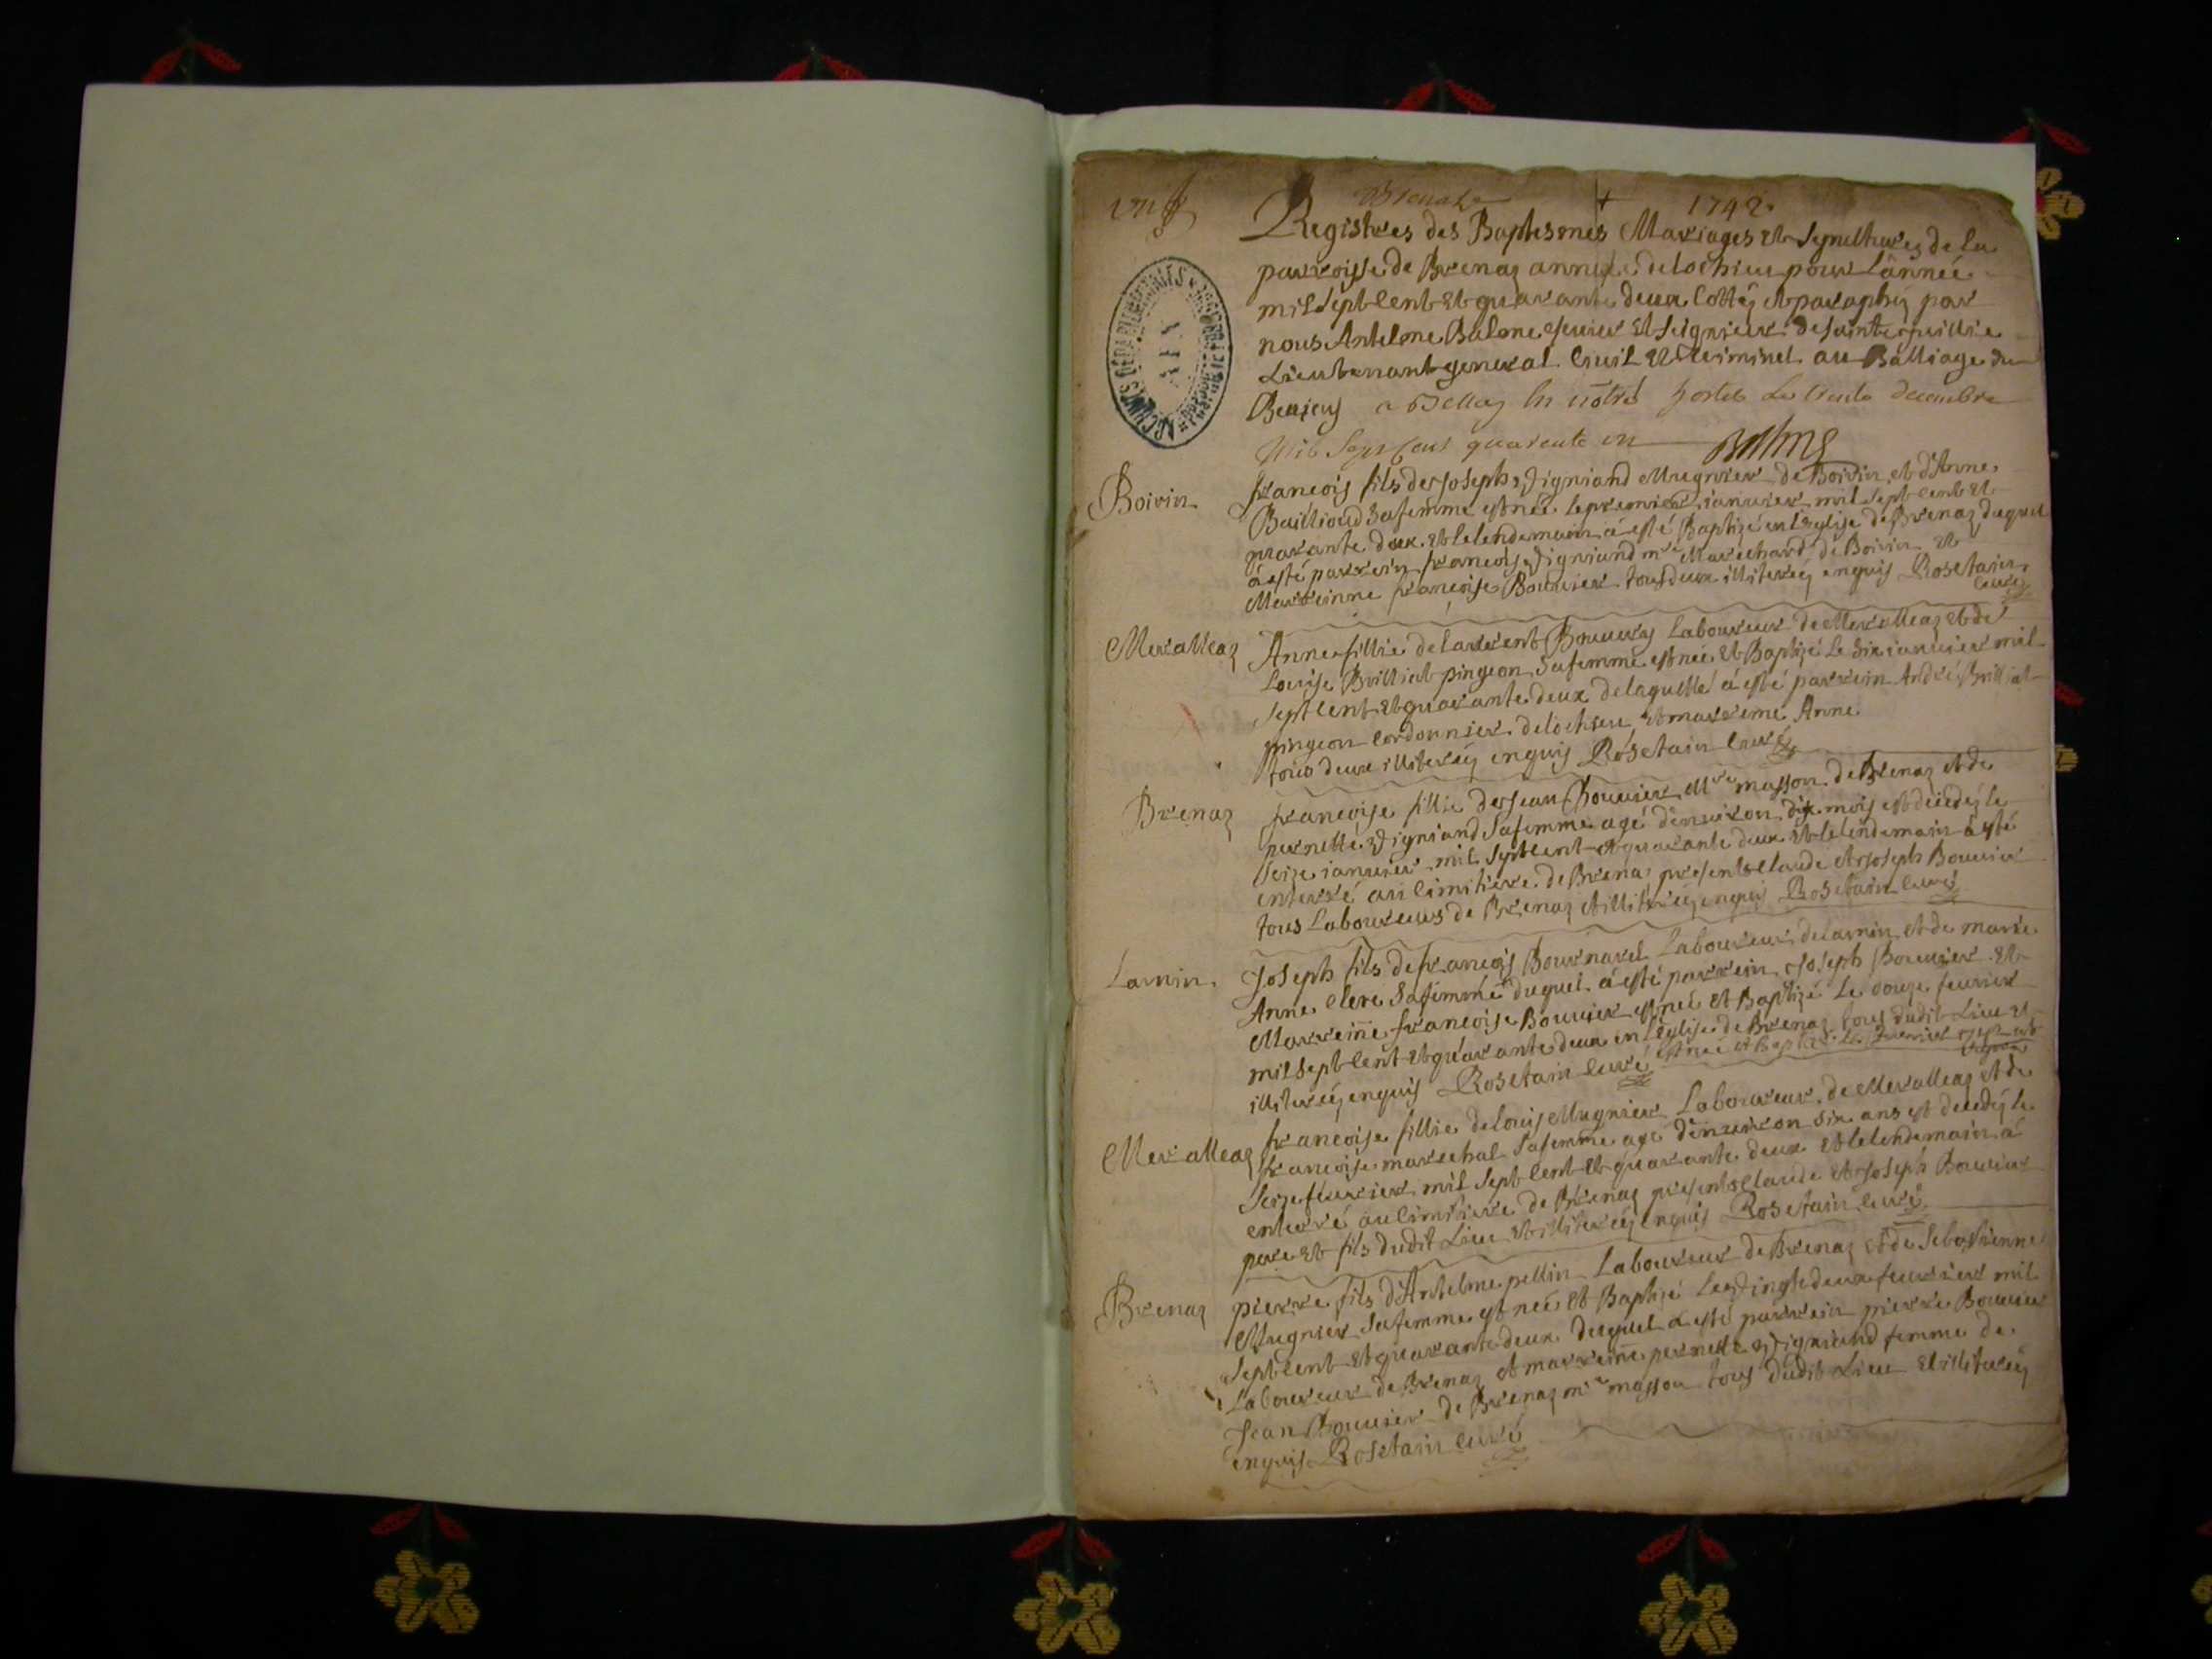 Brenaz + 1742
Registres des Baptesmes Mariages et Sepultures de la
parroisse de Brenaz annexe de lochieu pour l'année
mil sept cent et quarante deux cottéz et paraphéz par
nous Antelme Balme escuier et seigneur de sainte
Lieutenant general Civil et Criminel au Balliage du
Beugey a Belley en nôtre hostel Le trente decembre
Mil Sept Cent quarente un Balme
Boirin
francois fils de Joseph Vigniand Mugnier de Boirin et d'Anne
sa femme est née le premier ianuier mil sept cent et
quarante deux et le lendemain á esté Baptizé en l'Eglise de Brenaz duquel
á esté parrein francois Vigniand mre Marechard de Boirin et
Marreinne francoise Bouuier tous deux illiteréz enquis Rosetain
Curé
Meraleaz
Anne fillie de laurent Laboureur de Meraleaz et de
Louise Brilliat pingeon sa femme est née et Baptizé Le Six ianuier mil
sept cent et quarante deux de laquelle á esté parrein André Brilliat
pingeon Cordonnier de lochieu et marreine Anne
tous deux illiteréz enquis Rosetain Curé
Brenaz
francoise fillie de Jean Bouuier Mre masson de Brenaz et de
pernette Vigniand sa femme agé d'enuiron dix mois est decedéz le
seize ianuier mil sept cent et quarante deux et le lendemain á esté
enterré au Cimitiere de Brenaz presents Claude et Joseph Bouuier
tous Laboureurs de Brenaz et illiteréz enquis Rosetain Curé
Larnin
Joseph fils de francois Bournarel Laboureur de Larnin et de marie
Anne Clerc sa femme duquel á esté parrein Joseph Bouuier et
Marreinne francoise Bouuier est née et Baptizé Le douze feurier
mil sept cent et quarante deux en l'Eglise de Brenaz tous dudit Lieu et
illiteréz enquis Rosetain Curé
Meraleaz
francoise fillie de louis Mugnier Laboureur de Meraleaz et de
francoise marechal sa femme agé d'enuiron six ans est decedéz le
seize feurier mil sept cent et quarante deux et le lendemain á
enterré au Cimitiere de Brenaz presents Claude et Joseph Bouuier
pere et fils dudit Lieu et illiteréz enquis Rosetain Curé
Brenaz
pierre fils d'Antelme pellin Laboureur de Brenaz et de Sebastienne
Mugnier sa femme est née et Baptizé Le Vingt deux feurier mil
sept cent et quarante deux duquel á esté parrein pierre Bouuier
Laboureur de Brenaz et marreine pernette Vigniand femme de
Jean Bouuier de Brenaz mre masson tous dudit Lieu et illiteréz
enquis Rosetain Curé